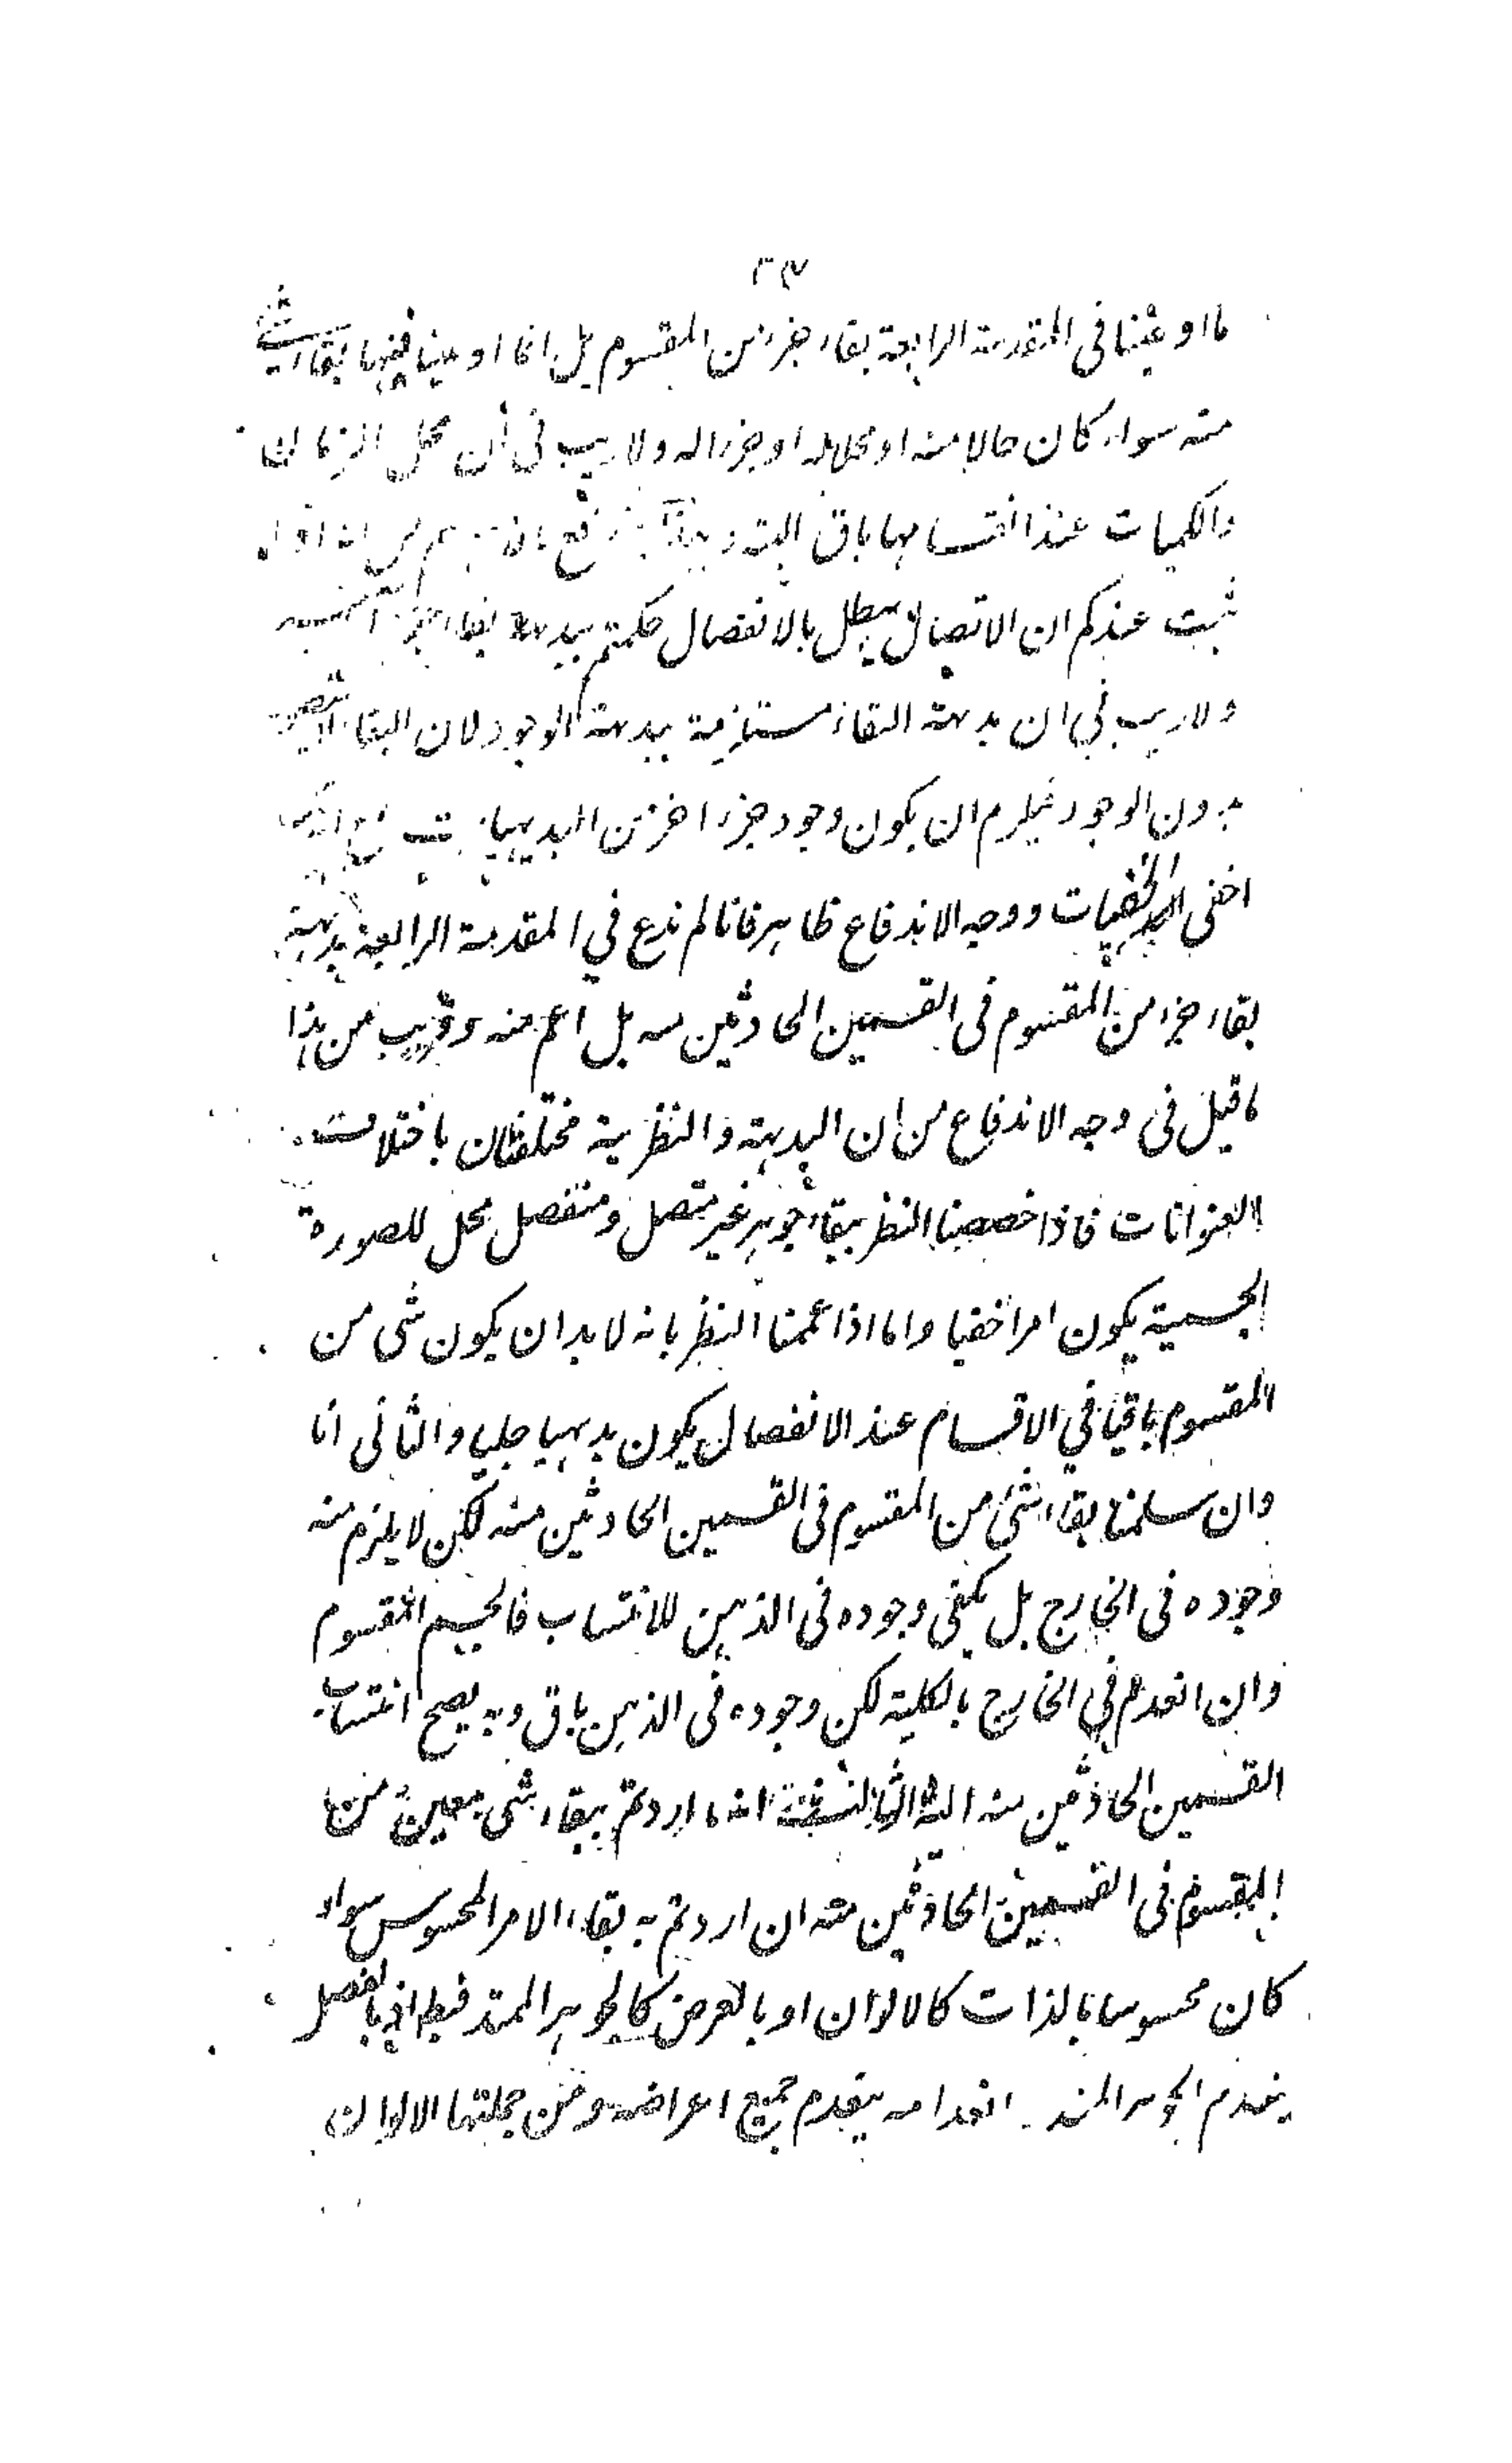 ٣٧
ما اوعينا فى المقدمة الرابعة بقاء جزء من المقسوم بل انما اوعينا فيها بقاء شئ
منه سواء كان حالا منه او محلا له او جزء اله ولا ريب فى أن محل الزمان
والكميات عند انقسامها باق البتة
ثبت عندكم ان الاتصال يبطل بالانفصال حكمتم ببدهة بقاء جزء
ولا ريب فى ان بدهة البقاء مستلزمة ببدهة الوجود لان البقاء
بدون الوجود فيلزم ان يكون وجود جزء اخر من البديهيات
اخفى الخفيات ووجه الاندفاع ظاهر فانا لم ندع في المقدمة الرابعة بدهية
بقاء جزء من المقسوم فى القسمين الحادثين منه بل اعم منه وقريب من هذا
ما قيل فى وجه الاندفاع من ان البديهة والنظرية مختلفتان باختلاف
العنوانات فاذا خصصنا النظر ببقاء جوهر غير متصل ومنفصل محل للصورة
الجسمية يكون امرا خفيا واما اذا عممنا النظر بانه لا بد ان يكون شى من
المقسوم باقيا في الاقسام عند الانفصال يكون بديهيا جليا والثانى انا
وان سلمنا بقاء شئ من المقسوم فى القسمين الحادثين منه لكن لا يلزم منه
وجوده فى الخارج بل يكفى وجوده فى الذهن للانتساب فالجسم المقسوم
وان انعدم في الخارج بالكلية لكن وجوده فى الذهن باق وبه يصح انتساب
القسمين الحادثين منه اليه الثالث انه ما اردتم ببقاء شى معين من
المقسوم فى القسمين الحادثين منه ان اردتم به بقاء الامر المحسوس سواء
كان محسوسا بالذات كالالوان او بالعرض كالجوهر الممتد فبط اذ بالفصل
ينعدم الجوهر الممتد انعدامه ينعدم جميع اعراضه ومن جملتها الالوان